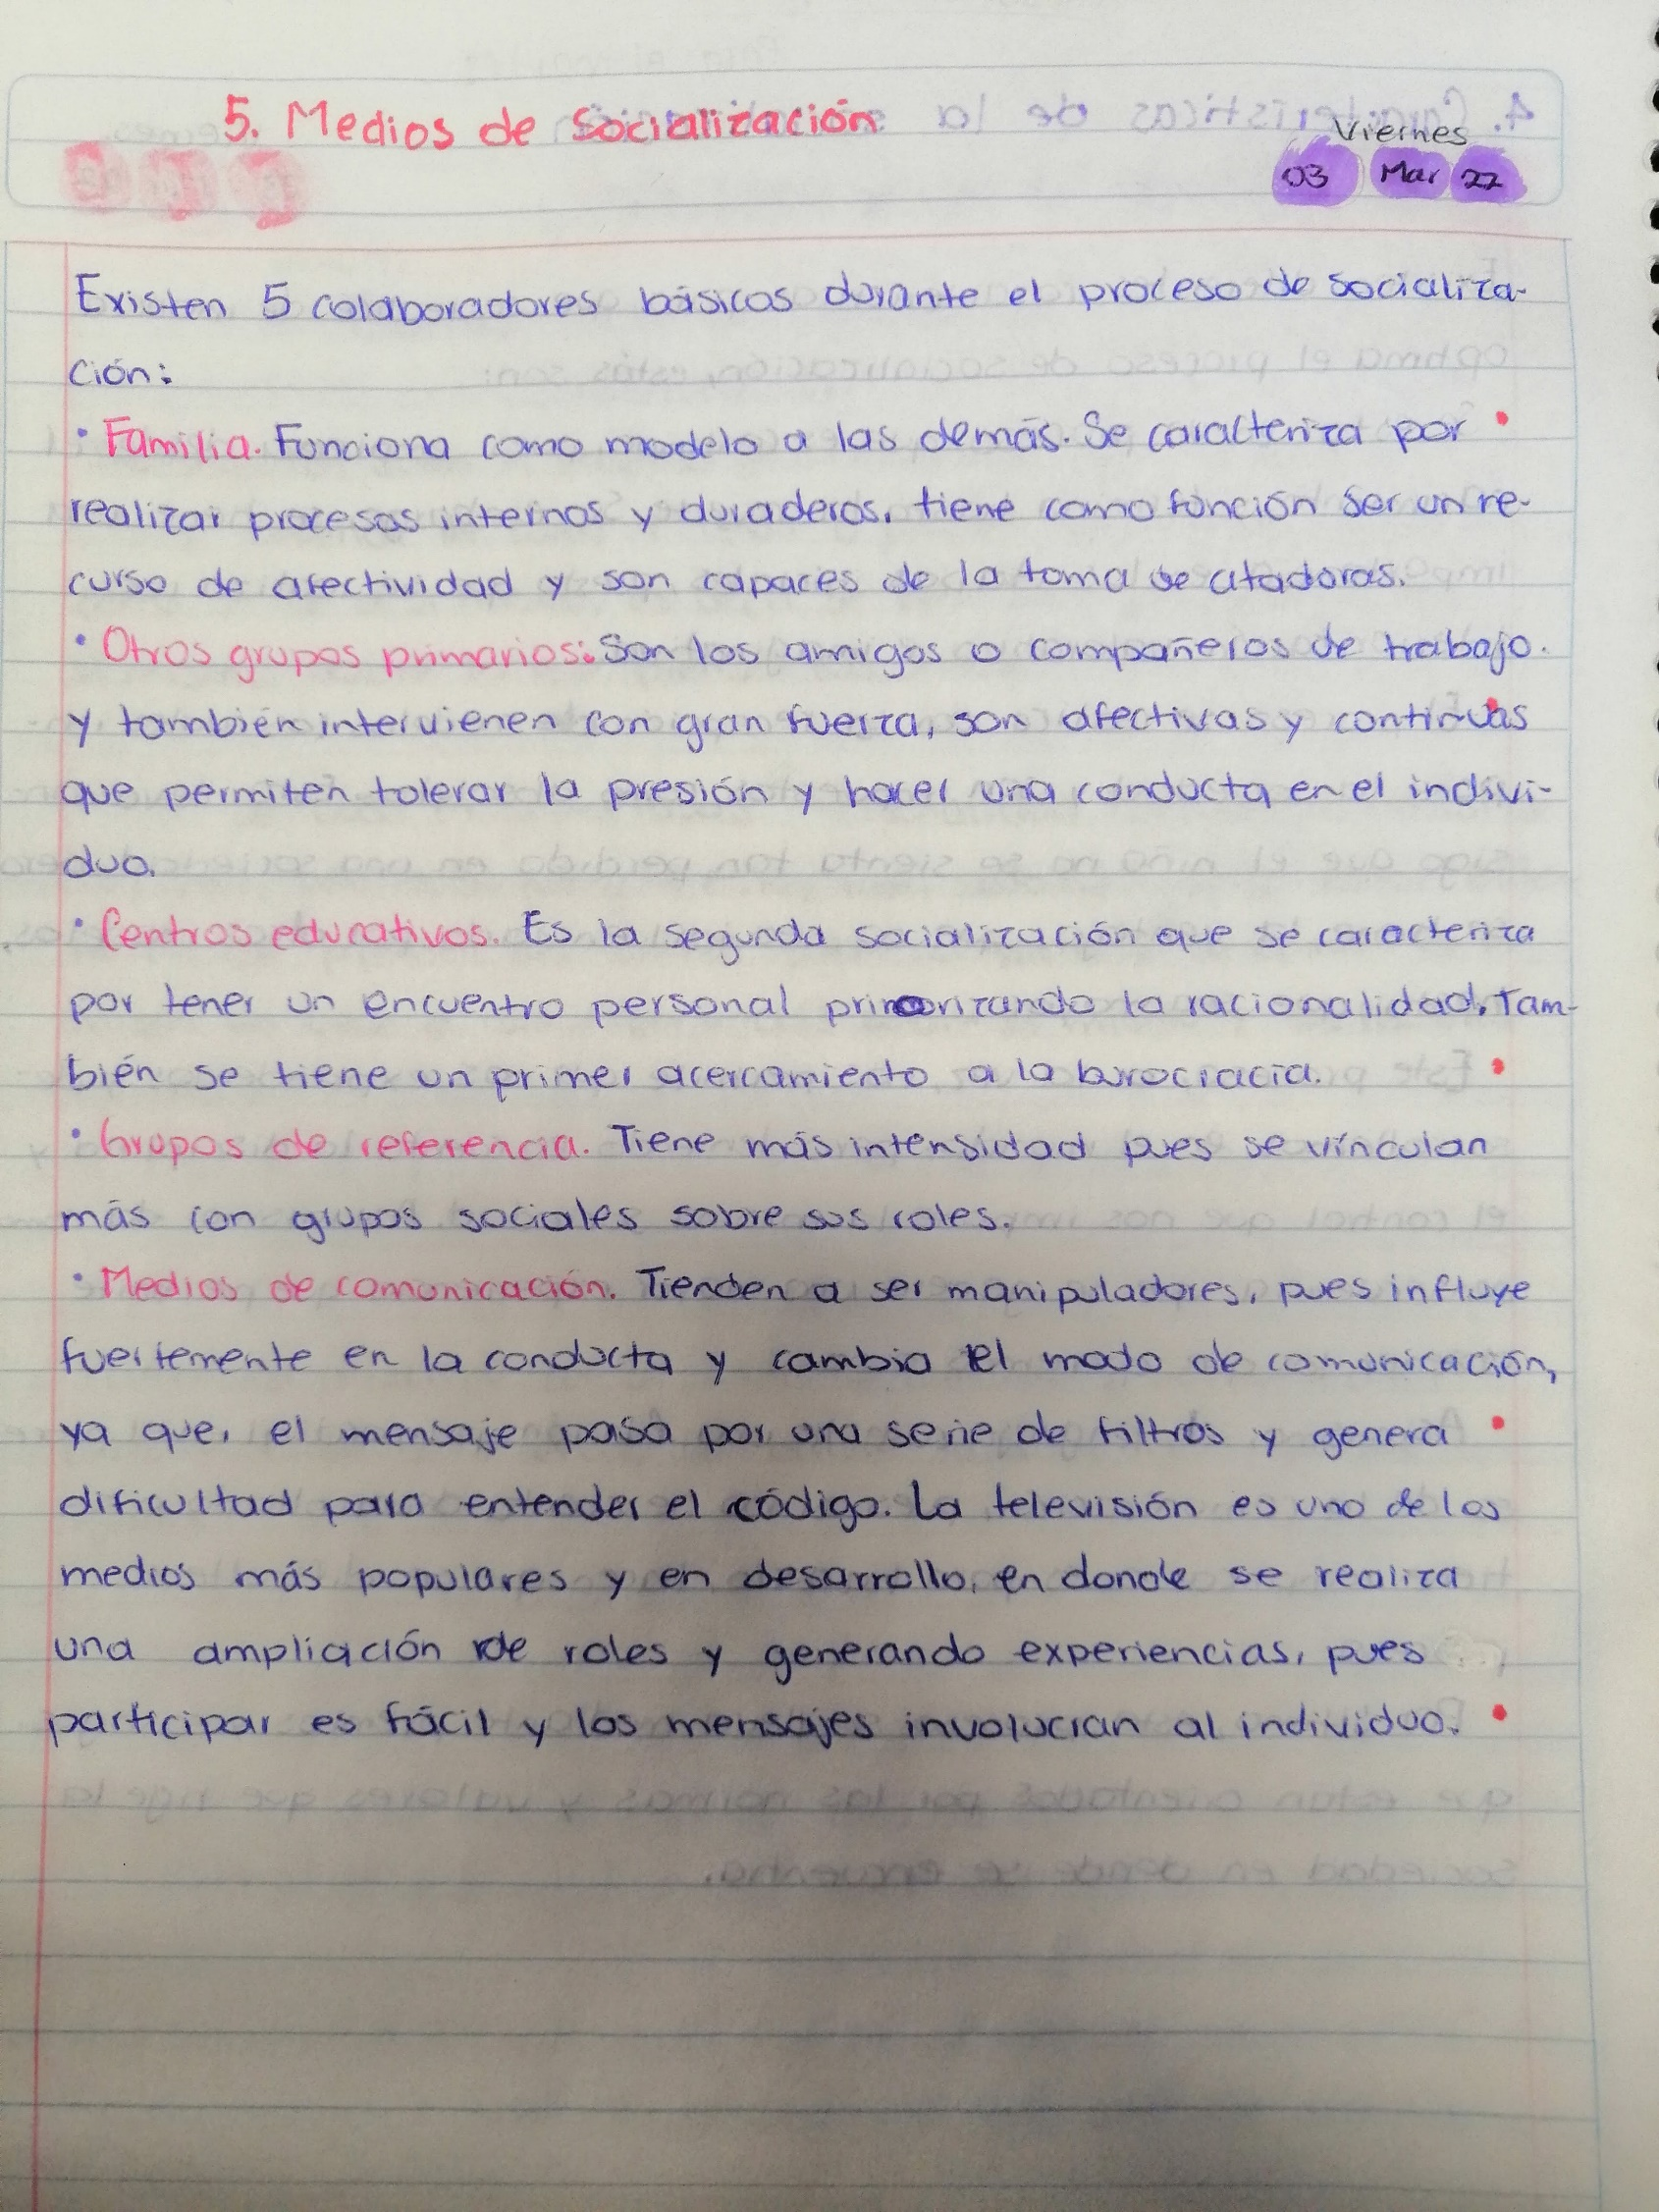 5. Medios de Socialización
Viernes
03 Mar 22
Existen 5 colaboradores básicos durante el proceso de socializa-
ción:
• Familia. Funciona como modelo a las demás. Se caracteriza por
realizar procesos internos y duraderos, tiene como función ser un re-
curso de afectividad y son capaces de la toma de
• Otros grupos primarios: Son los amigos o compañeros de trabajo.
y también intervienen con gran fuerza, son afectivas y continuas
que permiten tolerar la presión y hacer una conducta en el indivi-
duo.
• Centros educativos. Es la segunda socialización que se caracteriza
por tener un encuentro personal la racionalidad. Tam-
bién se tiene un primer acercamiento a la burocracia.
• Grupos de referencia. Tiene más intensidad pues se vínculan
más con grupos sociales sobre sus roles.
• Medios de comunicación. Tienden a ser manipuladores, pues influye
fuertemente en la conducta y cambia el modo de comunicación,
ya que, el mensaje pasa por una serie de filtros y genera
dificultad para entender el código. La televisión es uno de los
medios más populares y en desarrollo, en donde se realiza
una ampliación de roles y generando experiencias, pues
participar es fácil y los mensajes involucran al individuo.